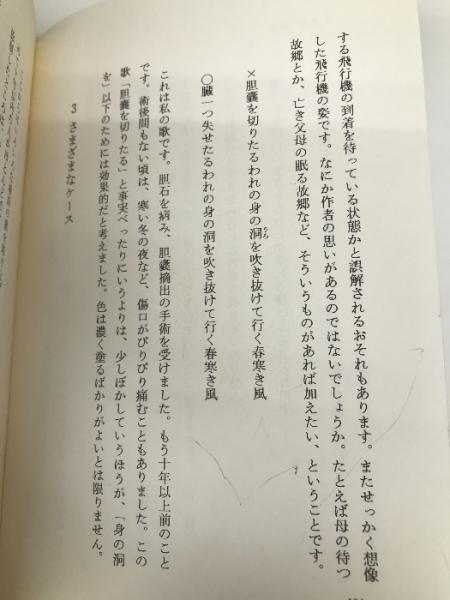 する飛行機の到着を待っている状態かと誤解されるおそれもあります。またせっかく想像
した飛行機の姿です。なにか作者の思いがあるのではないでしょうか。たとえば母の待つ
故郷とか、亡き父母の眠る故郷など、そういうものがあれば加えたい、ということです。
×胆嚢を切りたるわれの身の洞を吹き抜けて行く春寒き風
〇臓一つ失せたるわれの身の洞を吹き抜けて行く春寒き風
これは私の歌です。胆石を病み、胆嚢摘出の手術を受けました。もう十年以上前のこと
です。術後間もない頃は、寒い冬の夜など、傷口がぴりぴり痛むこともありました。この
歌「胆嚢を切りたる」と事実べったりにいうよりは、少しぼかしていうほうが、「身の洞
を」以下のためには効果的だと考えました。色は濃く塗るばかりがよいとは限りません。
3 さまざまなケース